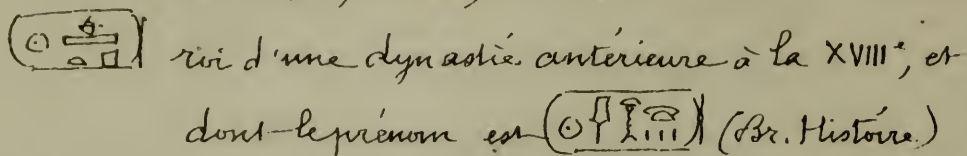 𓇳𓊵𓏏𓊪 roi d'une dynastie antérieure à la XVIIIe, et
dont le prénom est 𓇳𓌂𓎝𓈍𓏥 (Br. Histoire)